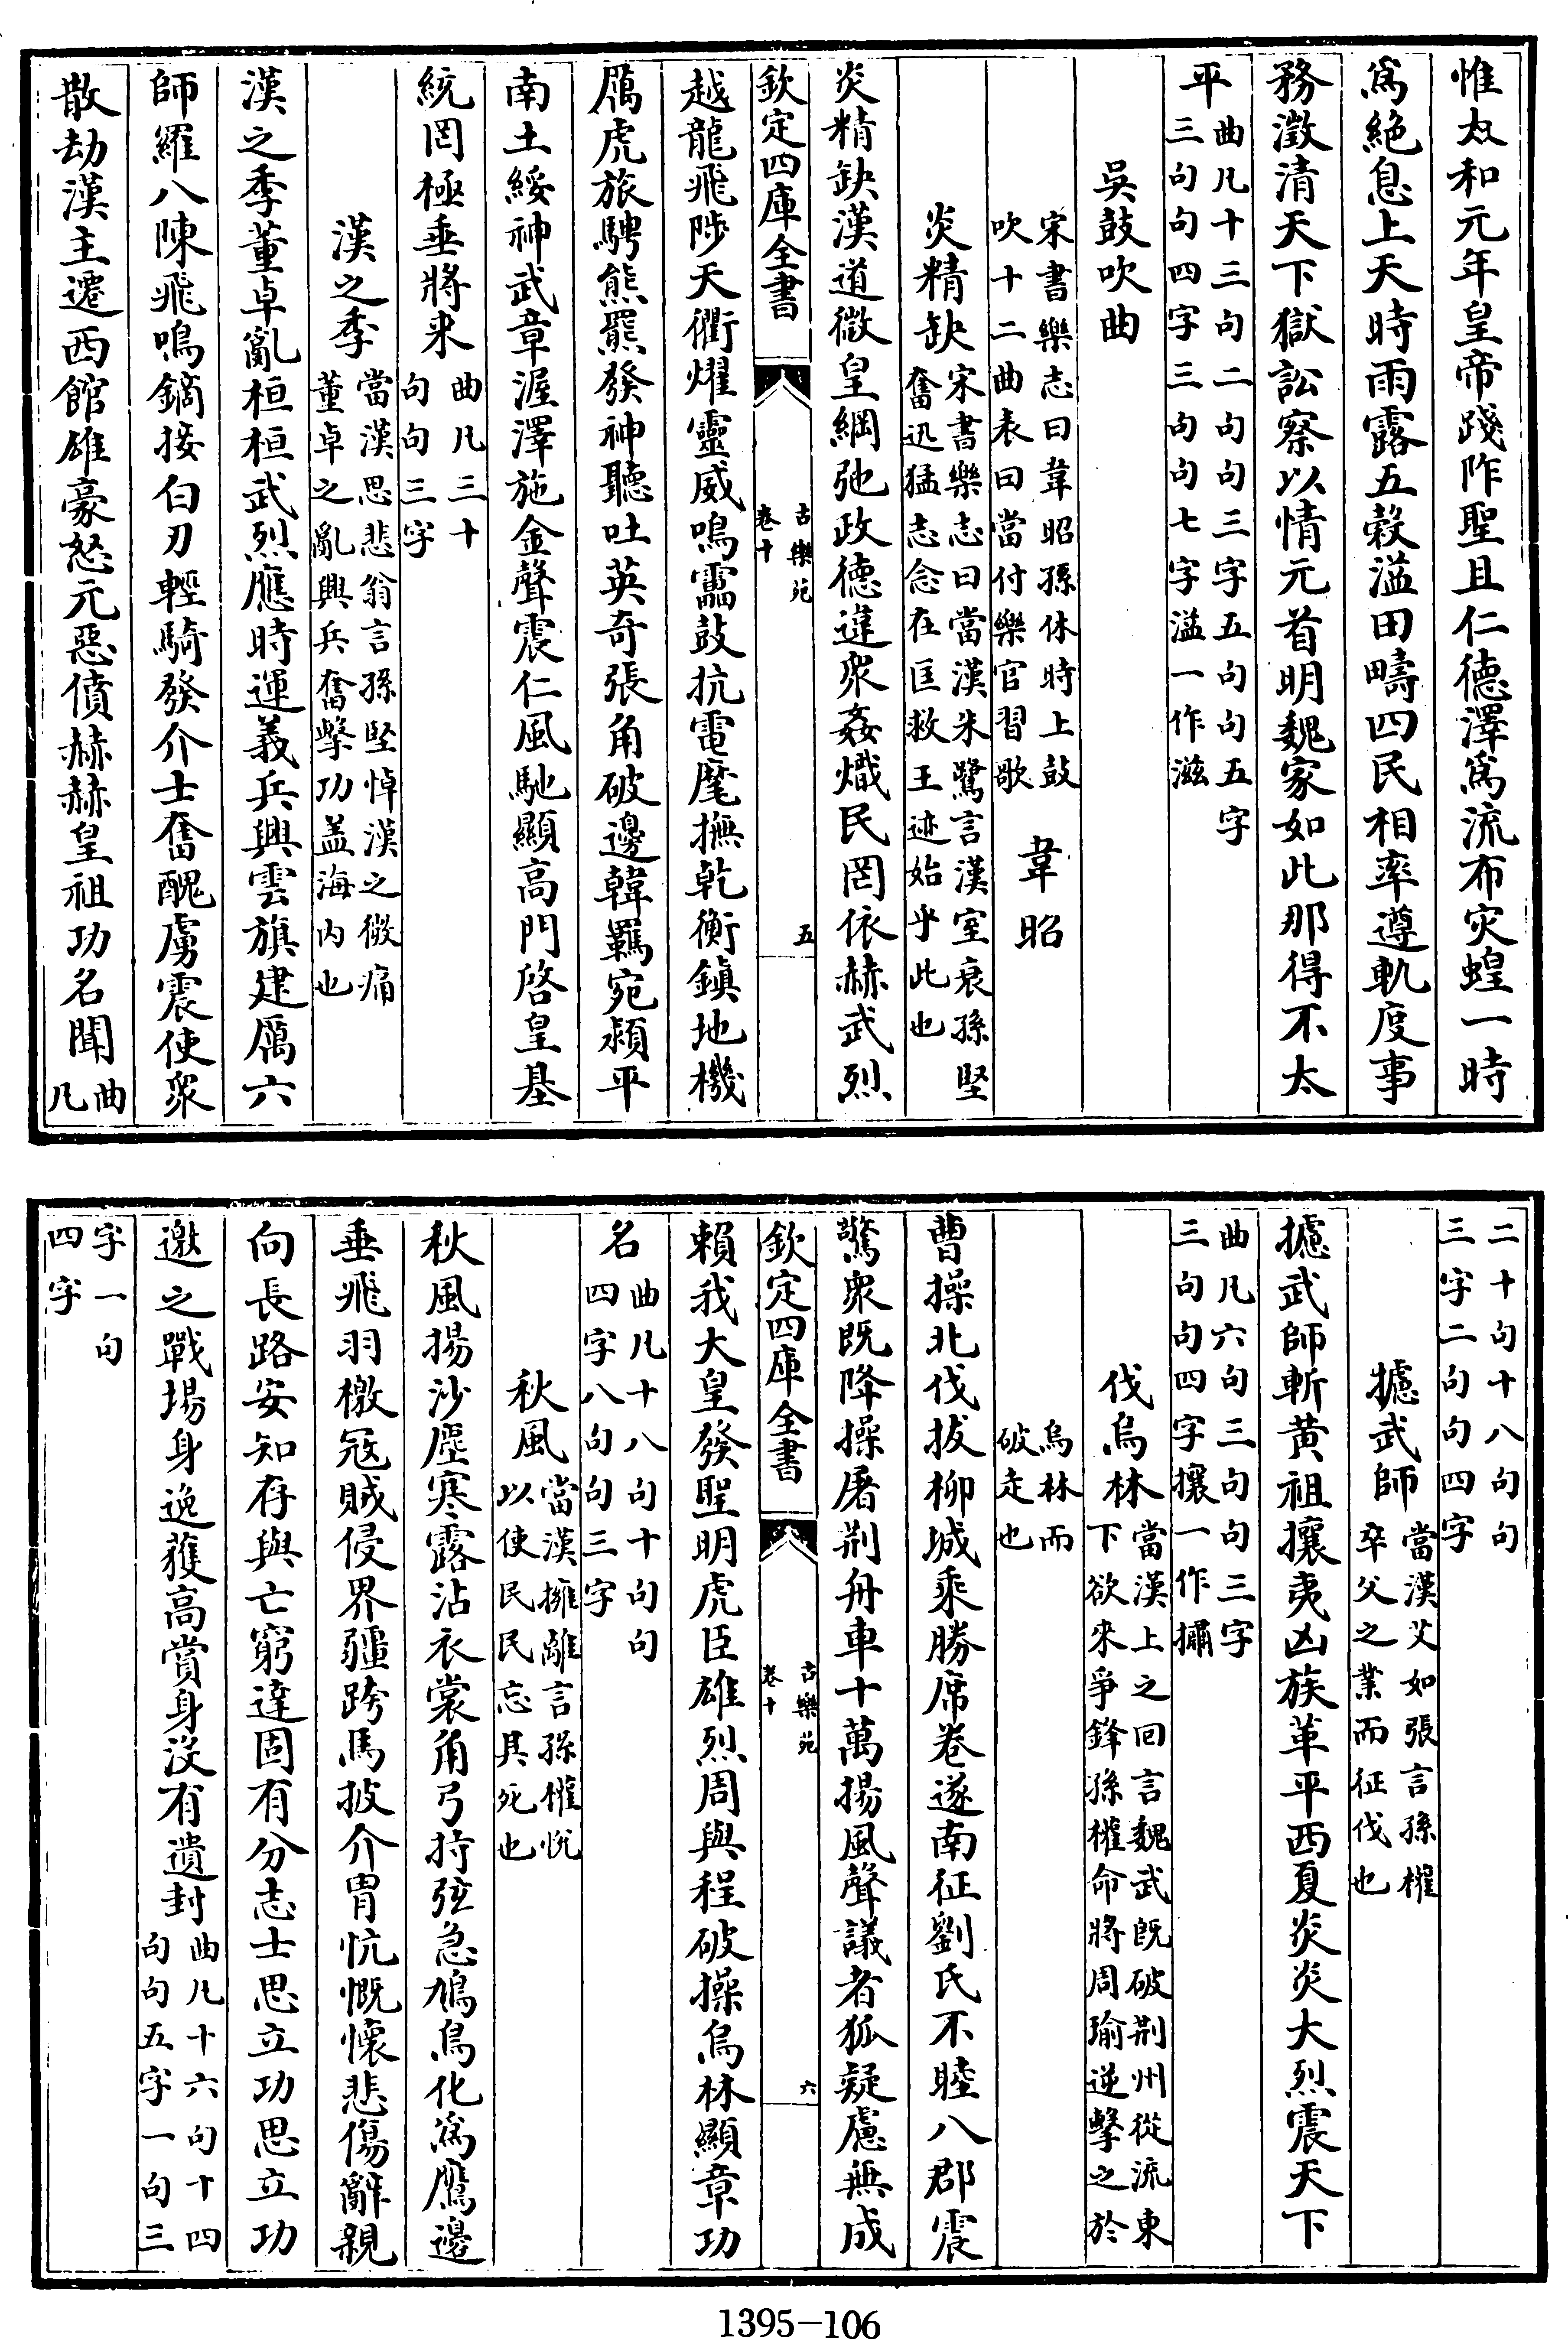 惟太和元年皇帝踐阼聖且仁德澤爲流布灾蝗一時
爲絶息上天時雨露五穀溢田疇四民相率遵軌度事
務澂清天下獄訟察以情元首明魏家如此那得不太
平曲凡十三句二句句三字五句句五字
三句句四字三句句七字溢一作滋
吳鼓吹曲
宋書樂志曰韋昭孫休時上鼓
吹十二曲表曰當付樂官習歌
韋昭
炎精缺宋書樂志曰當漢朱鷺言漢室衰孫堅
奮迅猛志念在匡救王迹始乎此也
炎精缺漢道微皇綱弛政德違衆姦熾民罔依赫武烈
欽定四庫全書
古樂苑
卷十
五
越龍飛陟天衢燿靈威鳴靁鼓抗電麾撫乾衡鎮地機
厲虎旅騁熊羆發神聽吐英奇張角破邊韓羈宛潁平
南土綏神武章渥澤施金聲震仁風馳顯高門啓皇基
統罔極垂將来曲凡三十
句句三字
漢之季當漢思悲翁言孫堅悼漢之微痛
董卓之亂興兵奮擊功盖海内也
漢之季董卓亂桓桓武烈應時運義兵興雲旗建厲六
師羅八陳飛鳴鏑接白刃輕騎發介士奮醜虜震使衆
散劫漢主遷西館雄豪怒元惡僨赫赫皇祖功名聞曲
凡
二十句十八句句
三字二句句四字
攄武師當漢艾如張言孫權
卒父之業而征伐也
攄武師斬黄祖攘夷凶族革平西夏炎炎大烈震天下
曲凡六句三句句三字
三句句四字攘一作㩋
伐烏林當漢上之回言魏武既破荆州從流東
下欲來爭鋒孫權命將周瑜逆擊之於
烏林而
破走也
曹操北伐拔柳城乘勝席卷遂南征劉氏不睦八郡震
驚衆既降操屠荆舟車十萬揚風聲議者狐疑慮無成
欽定四庫全書
古樂苑
卷十
六
賴我大皇發聖明虎臣雄烈周與程破操烏林顯章功
名曲凡十八句十句句
四字八句句三字
秋風當漢擁離言孫權悦
以使民民忘其死也
秋風揚沙塵寒露沾衣裳角弓持弦急鳩鳥化爲鷹邊
垂飛羽檄冦賊侵界疆跨馬披介冑忼慨懷悲傷辭親
向長路安知存與亡窮達固有分志士思立功思立功
邀之戰場身逸獲高賞身没有遺封曲凡十六句十四
句句五字一句三
字一句
四字
1395-106